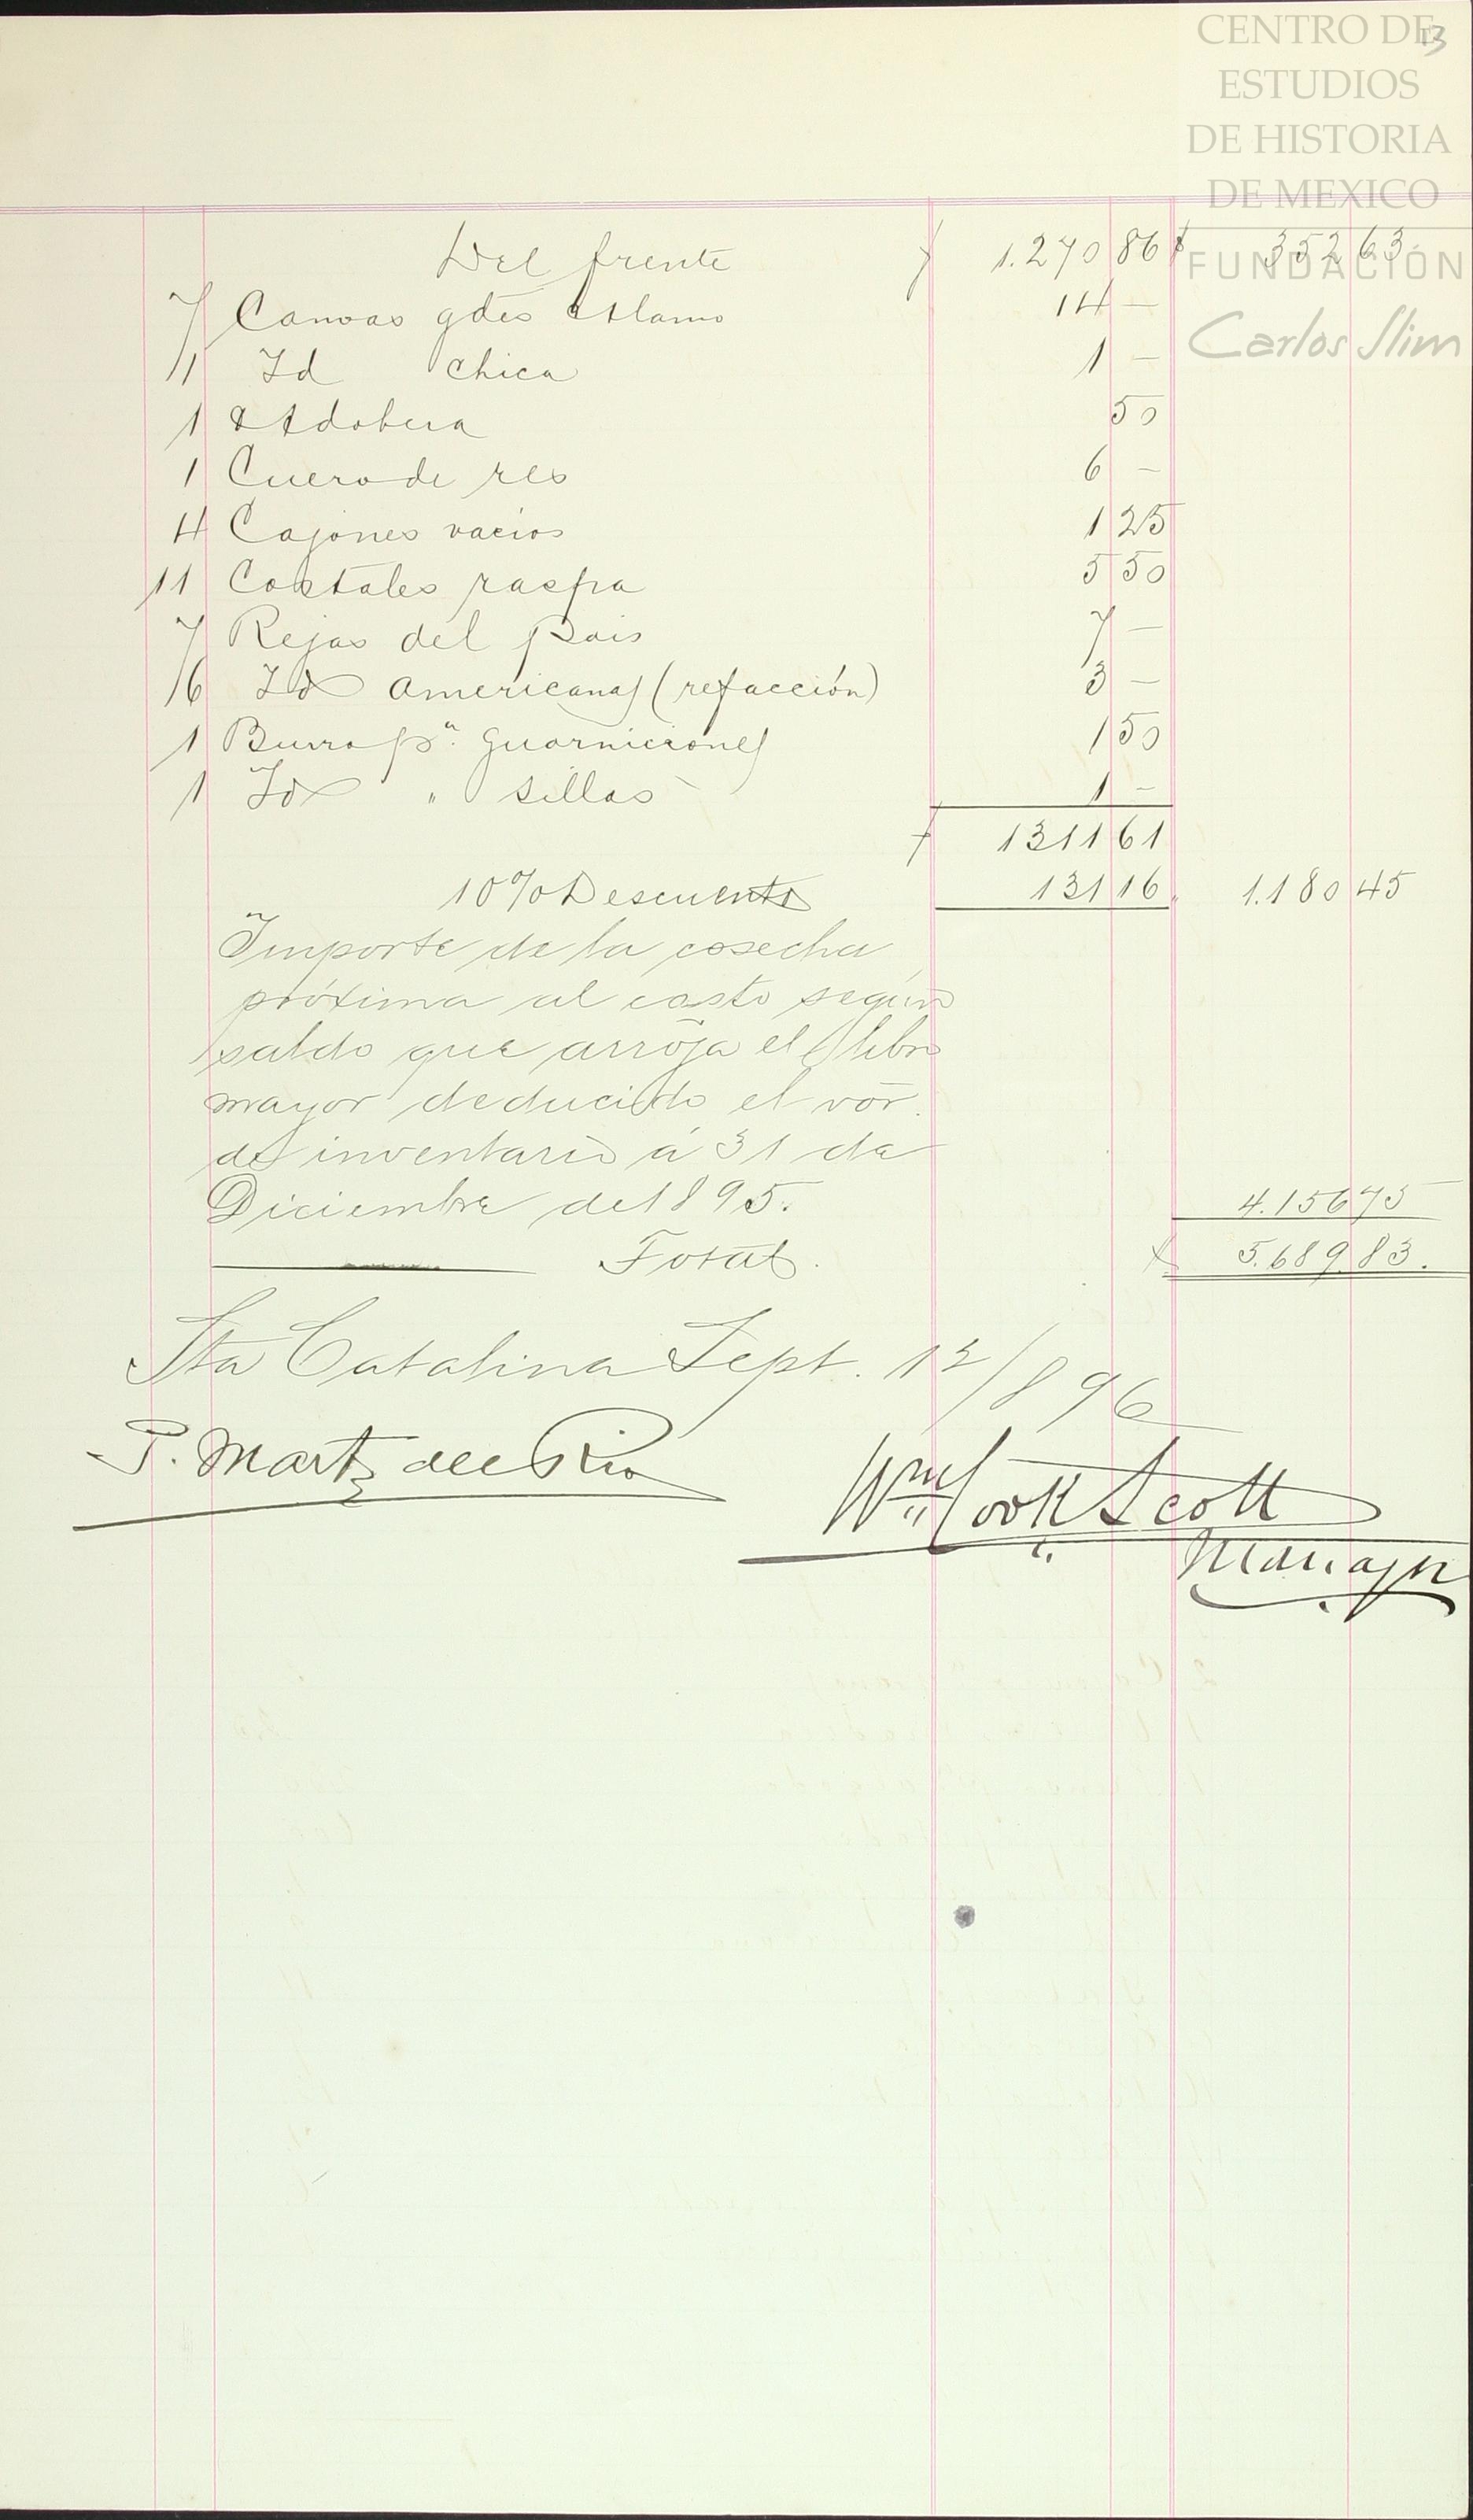 13
CENTRO DE
ESTUDIOS
DE HISTORIA
DE MEXICO
FUNDACIÓN
Carlos Slim
Del frente $ 1.270 86 $ 352 63
7 Canoas gdes Alamo 14 —
1 Id chica 1 —
1 Adobera 50
1 Cuero de res 6 —
4 Cajones vacios 1 25
11 Costales raspa 5 50
7 Rejas del pais 7 —
6 Id Americanas (refacción) 3 —
1 Burro pa. guarniciones 1 50
1 Id " sillas 1 —
$ 1311 61
10% Descuento 131 16 1.180 45
Importe de la cosecha
próxima al costo según
saldo que arroja el libro
mayor deducido el vor.
de inventario á 31 de
Diciembre de 1895. 4.156 75
Total. $ 5.689 83.
Sta Catalina Sept. 12/896
P. Martz del Rio
Wm Cook Scott
Manager